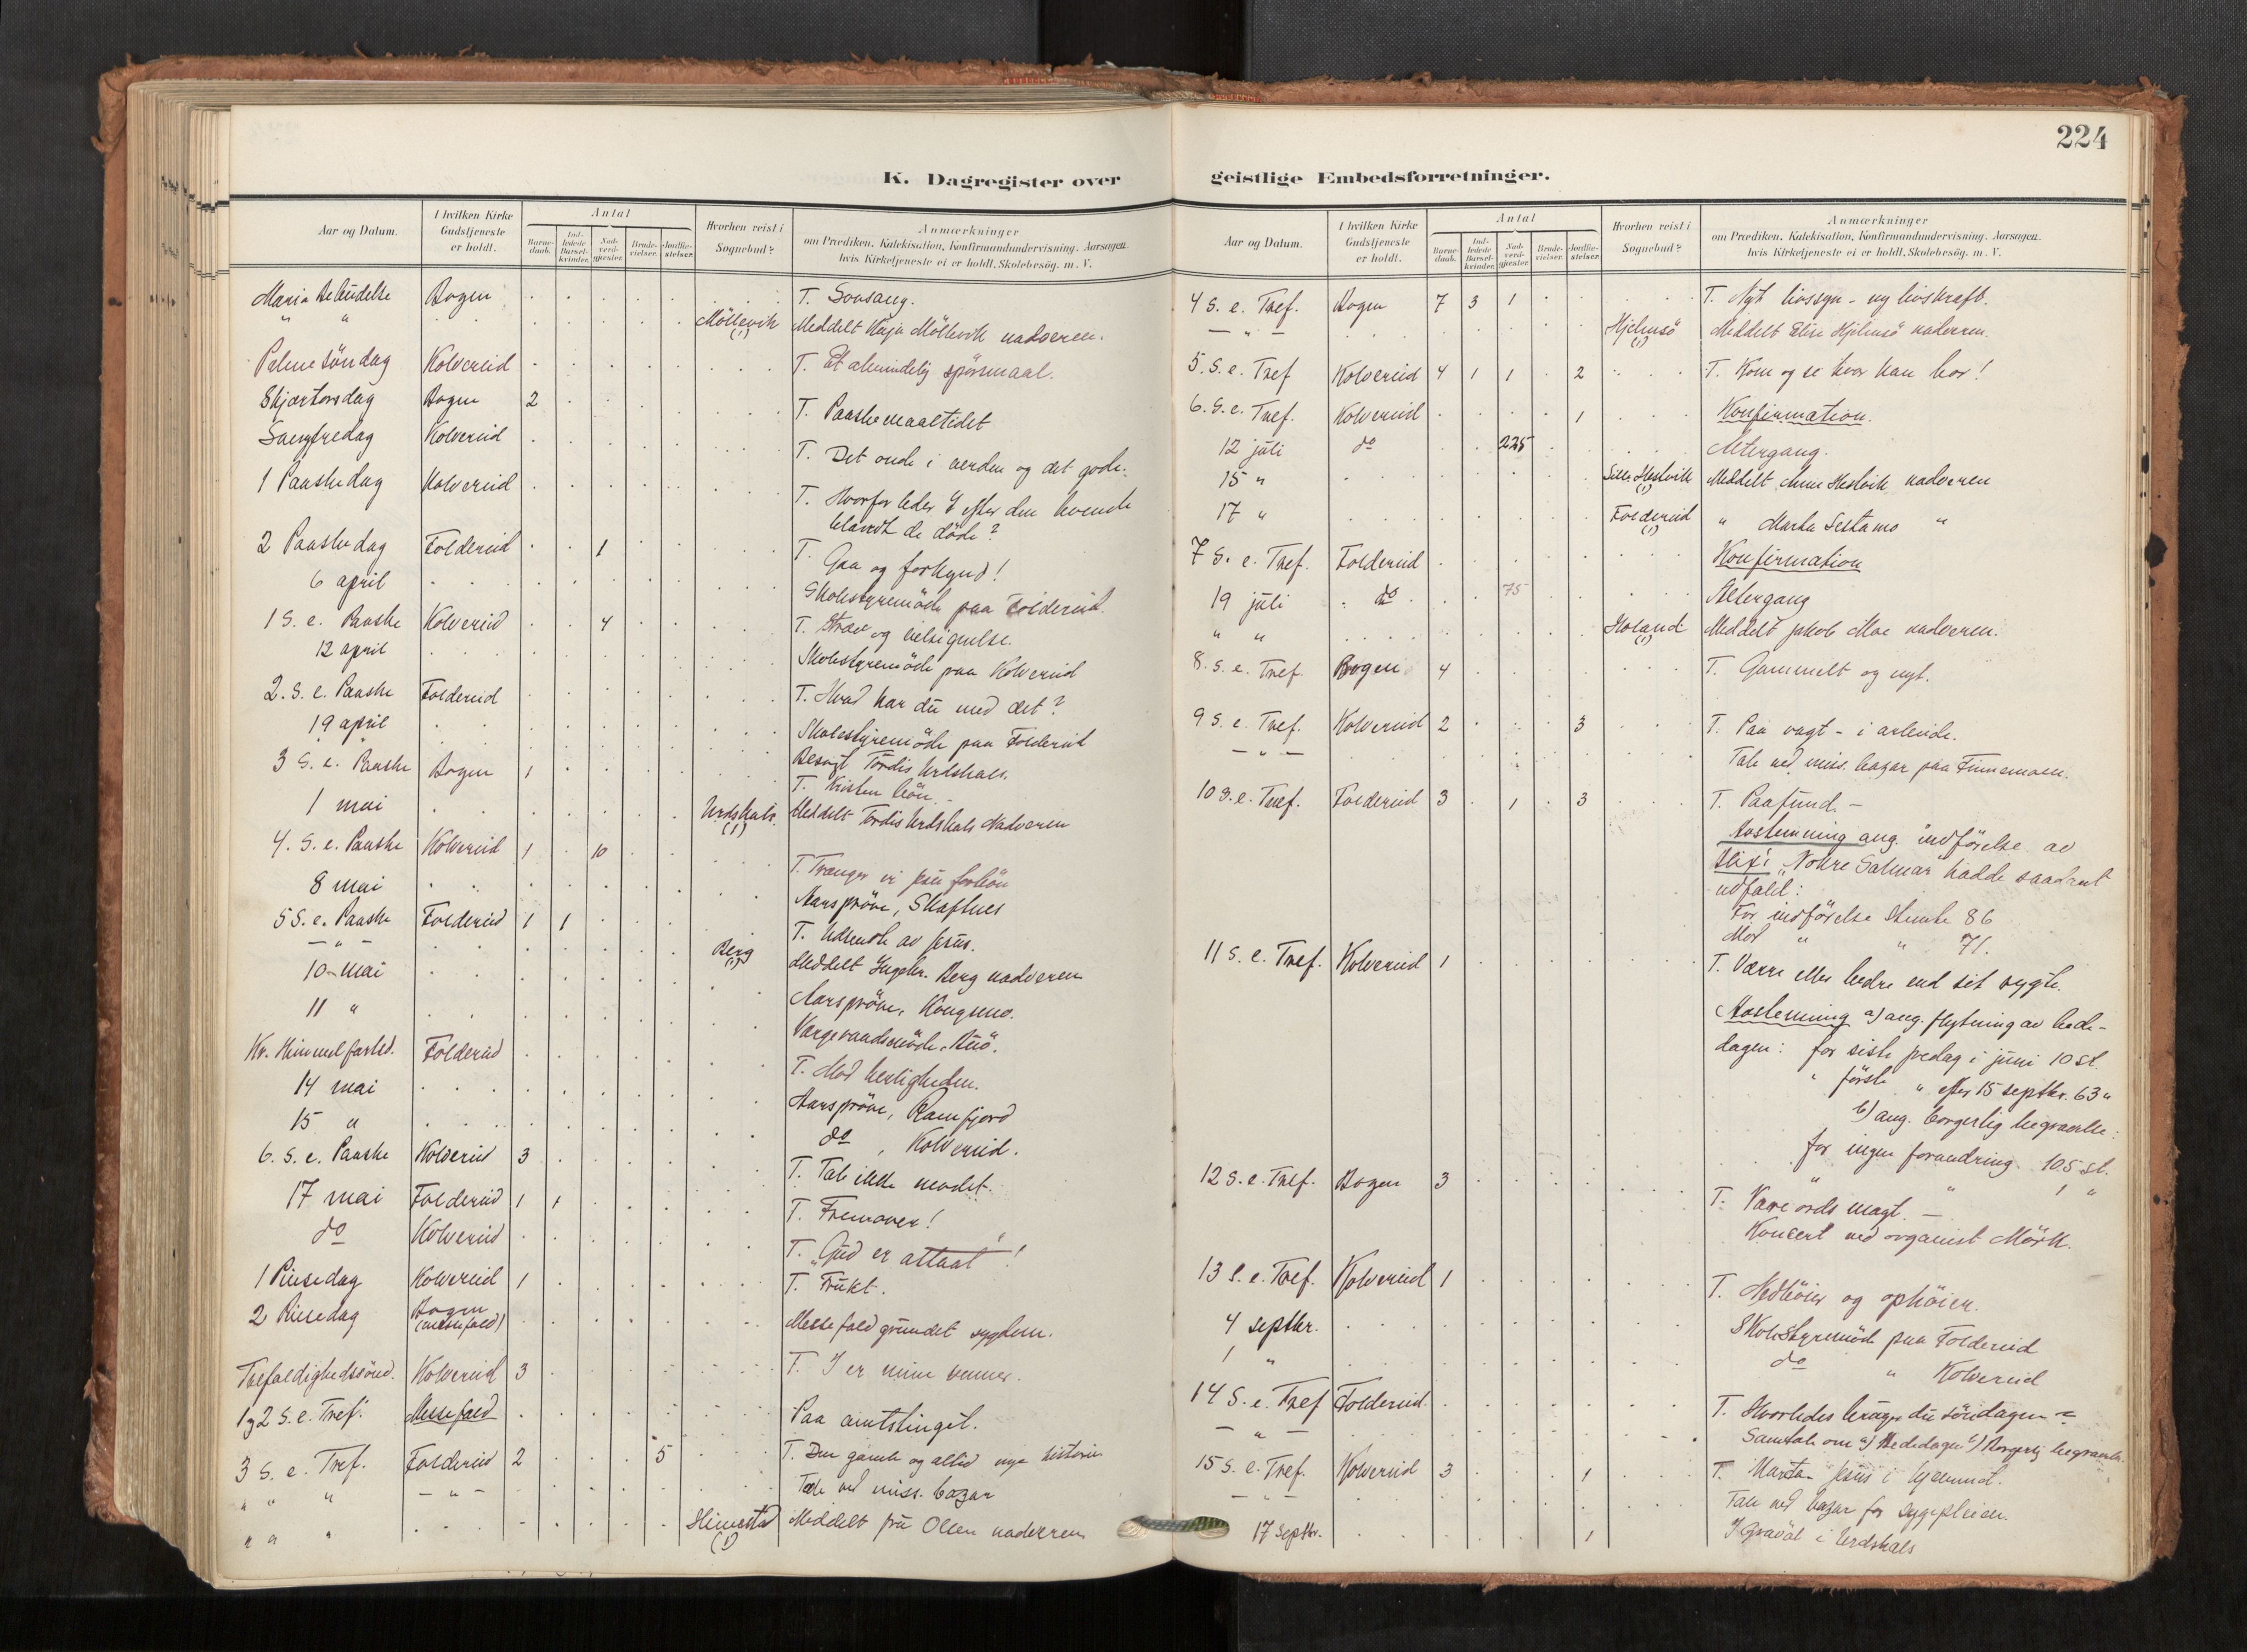 224
K. Dagregister over geistlige Embedsforretninger.
Aar og Datum. I hvilken Kirke Gudstjeneste er holdt. Antal Barnedaab. Indledede Barselkvinder. Nadverdgjester. Brudevielser. Jordfæstelser. Hvorhen reist i Sognebud? Anmærkninger om Prædiken, Katekisation, Konfirmandundervisning. Aarsagen, hvis Kirketjeneste ei er holdt. Skolebesøg. m. V.
Maria Bebudelse Bogen T. Lovsang.
" " Möllevik (1) Meddelt Möllevik nadveren.
Palmesöndag Kolvereid T. Et almindelig spörsmaal.
Skjærtorsdag Bogen 2 T. Paaskemaaltidet
Langfredag Kolvereid T. Det onde i verden og det gode.
1 Paaskedag Kolvereid T. Hvorfor leder I efter den levende
blandt de döde?
2 Paaskedag Foldereid 1 T. Gaa og forkynd!
6 april Skolestyremöde paa Foldereid.
1 S. e. Paaske Kolvereid 4 T. og velsignelse.
12 april Skolestyremöde paa Kolvereid
2. S. e. Paaske Foldereid T. Hvad har du med det?
19 april Skolestyremöde paa Foldereid
Besøgt Tordis Urdshals.
3 S. e. Paaske Bogen 1 T. Kristen bön
1 mai Urdshals. (1) Meddelt Tordis Urdshals Nadveren
4. S. e. Paaske Kolvereid 1 10 T. Trænger vi Jesu forbön
8 mai Aarspröve, Skaflnes
5 S. e. Paaske Foldereid 1 1 T. Udsendt av Jesus.
— " — Berg (1) Meddelt Ingebr. Berg nadveren
10 mai Aarspröve, Kongsmo.
11 " Værgeraadsmöde,
Kr. Himmelfartsd. Foldereid T. Mod herligheden.
14 mai Aarspröve, Ramfjord
15 " do, Kolvereid.
6. S. e. Paaske Kolvereid 3 T. Tab ikke modet.
17 mai Foldereid 1 1 T. Fremover!
do Kolvereid T. "Gud er attaat"!
1 Pinsedag Kolvereid 1 T. Frukt.
2 Pinsedag Bogen (messefald) Messefald grundet sygdom.
Trefoldighedssönd. Kolvereid 3 T. I er mine venner.
1 g 2 S. e. Tref. Messefald Paa amtstinget.
3 S. e. Tref. Foldereid 2 5 T. Den gamle og altid nye historie
" " " — " — Tale ved miss. bazar
" " " (1) Meddelt fru Olsen nadveren
4 S. e. Tref. Bogen 7 3 1 T. Nyt livssyn - ny livskraft.
— " — Hjelmsö (1) Meddelt Elise Hjelmsö nadveren.
5. S. e. Tref Kolvereid 4 1 1 2 T. Kom og se hvor han bor!
6. S. e. Tref. Kolvereid 1 Konfirmation.
12 juli do 225 Altergang.
15 " Hestvik (1) Meddelt Anne Hestvik nadveren
17 " Foldereid (1) " Marta "
7 S. e. Tref. Foldereid Konfirmation
19 juli do 75 Altergang
" " (1) Meddelt Jakob Moe nadveren.
8. S. e. Tref. Bogen 4 T. Gammelt og nyt.
9 S. e. Tref. Kolvereid 2 3 T. Paa vagt - i arbeide.
— " — Tale ved miss. bazar paa Finnemoen.
10 S. e. Tref. Foldereid 3 1 3 T. Paafund. -
Avstemning ang. indförelse av
Blix's "Nokre Salmar" hadde saadant
udfald:
For indförelse stemte 86
Mod " " 71.
11 S. e. Tref. Kolvereid 1 T. Værre eller bedre end sit rygte.
Avstemning a) ang. flytning av bede-
dagen: for siste fredag i juni 10 st.
" förste " efter 15 septbr. 63 "
b) ang. borgerlig begravelse:
for ingen forandring 105 st.
" " 1 "
12 S. e. Tref. Bogen 3 T. Vare ords magt. —
Koncert ved organist Mörk.
13 S. e. Tref. Kolvereid 1 T. Nedböier og ophöier.
4 septbr. Skolestyremöde paa Foldereid
" do " Kolvereid
14 S. e. Tref Foldereid T. Hvorledes bruger du söndagen?
— " — Samtale om a) Bededagen b) Borgerlig begravelse.
15 S. e. Tref. Kolvereid 3 1 T. Marta - Jesus i hjemmet.
— " — Tale ved bazar for sygepleien.
17 Septbr. 1 I Gravöl i Urdshals